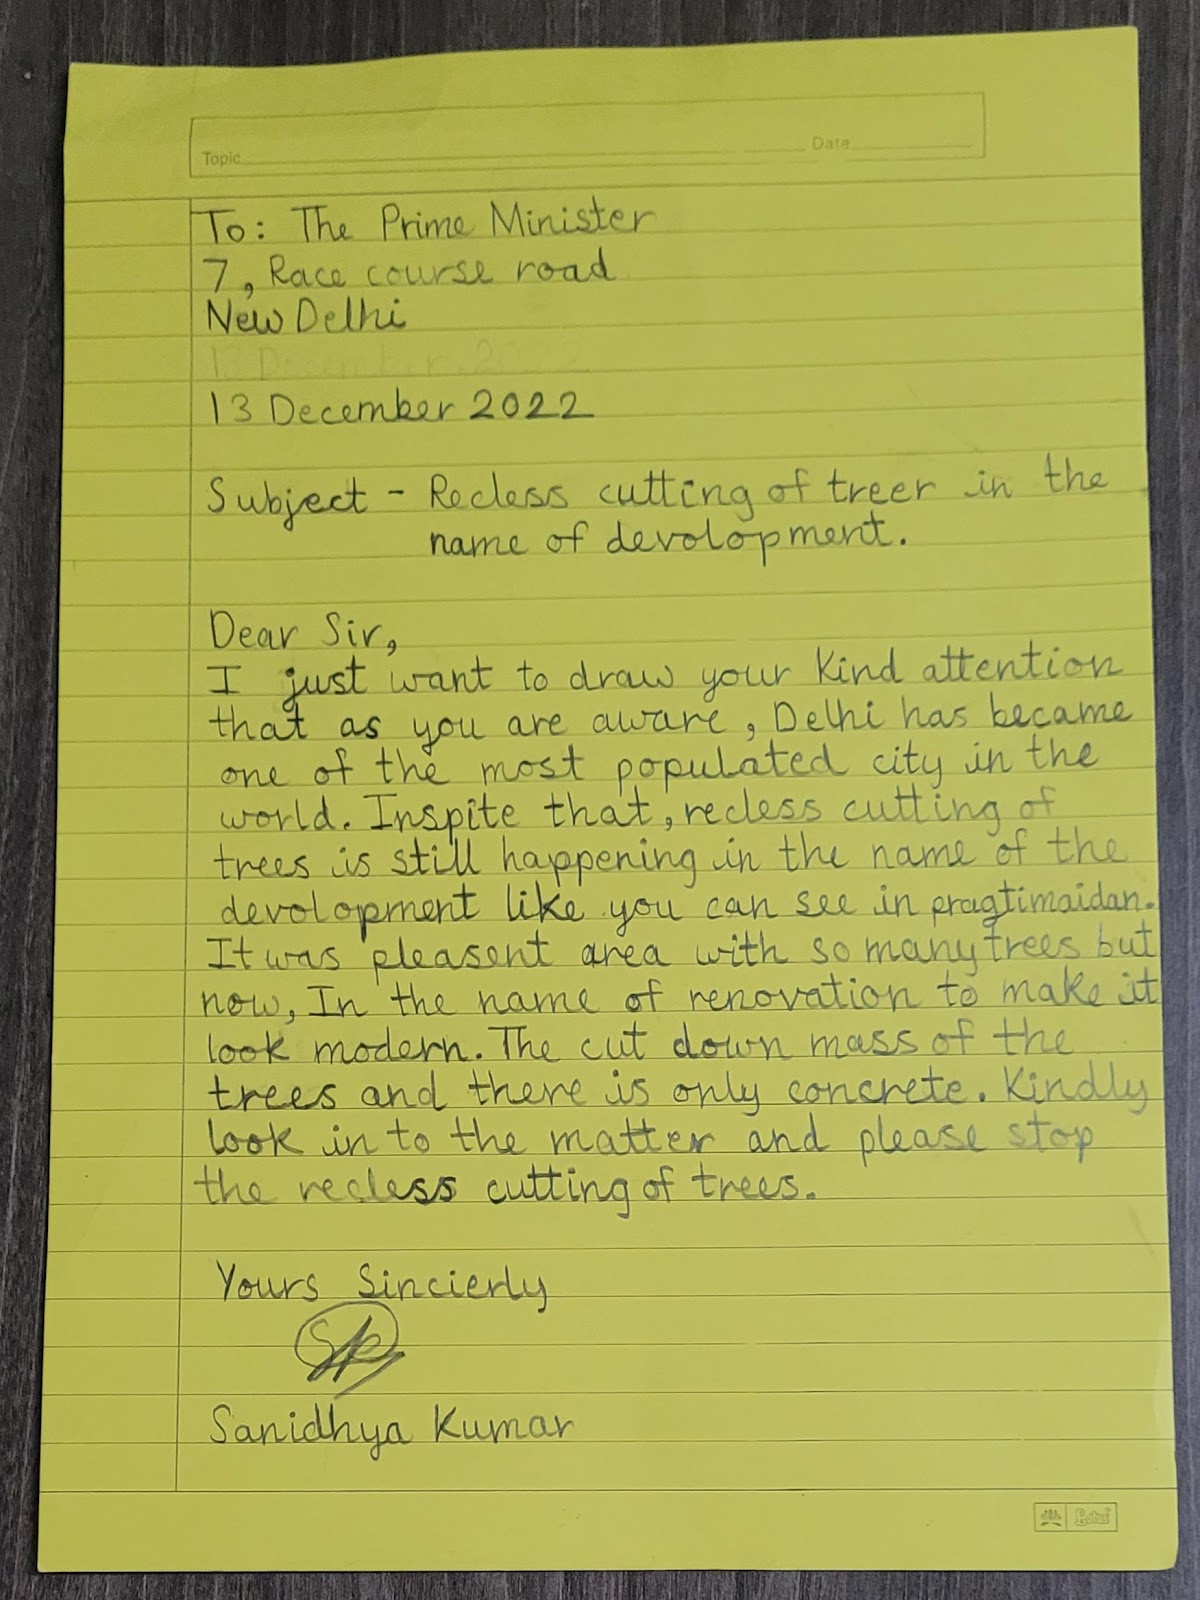 Topic
Date
To: The Prime Minister
7, Race course road
New Delhi
13 December 2022
13 December 2022
Subject - Recless cutting of treer in the
name of devolopment.
Dear Sir,
I just want to draw your Kind attention
that as you are aware, Delhi has became
one of the most populated city in the
world. Inspite that, recless cutting of
trees is still happening in the name of the
devolopment like you can see in pragtimaidan.
It was pleasent area with so many trees but
now, In the name of renovation to make it
look modern. The cut down mass of the
trees and there is only concrete. Kindly
look in to the matter and please stop
the recless cutting of trees.
Yours Sincierly
Sanidhya Kumar
Lotus